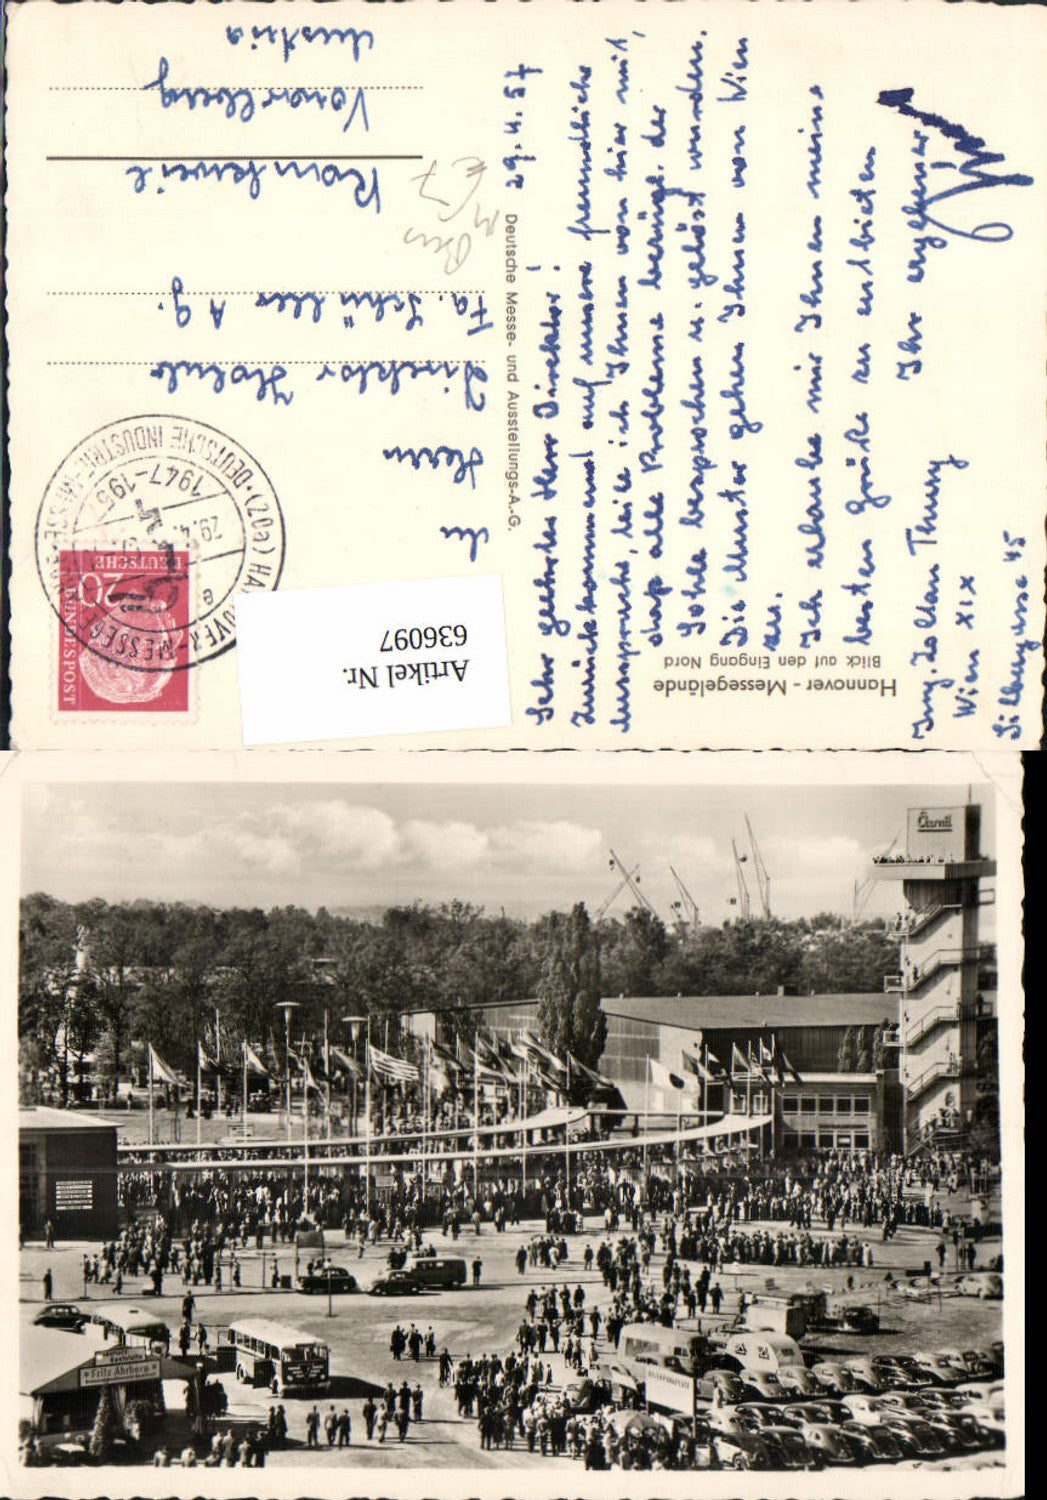 Sehr geehrter Herr Direktor!
29.4.57
Zurückkommend auf unsere freundliche
Aussprache, teile ich Ihnen von hier mit,
dass alle Probleme bezügl. der
Sohle besprochen u. gelöst wurden.
Die Muster gehen Ihnen von Wien
zu.
Ich erlaube mir Ihnen meine
besten Grüße zu entbieten
Ihr ergebener
Ing. Zoltan
Wien XIX
45
Deutsche Messe- und Ausstellungs-A.-G.
Hannover - Messegelände
Blick auf den Eingang Nord
An
Herrn
Direktor
Fa. Schüller A.G.
Rankweil
Vorarlberg
Austria
(20a) HANNOVER-MESSEGELÄNDE
DEUTSCHE INDUSTRIE-MESSE
1947-1957
29.4.
e
DEUTSCHE
BUNDESPOST
20
Artikel Nr.
636097
Fritz Ahrberg